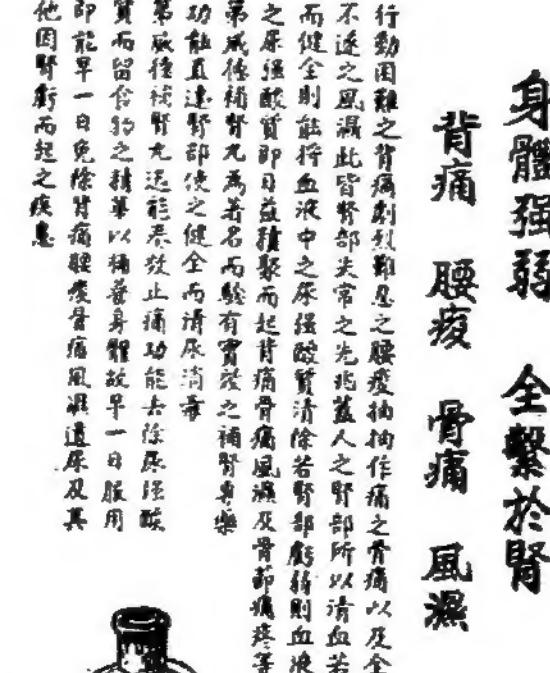 身體强弱 全繫於腎
背痛 腰痠 骨痛 風濕
行動困難之背痛劇烈難忍之腰痠抽抽作痛之骨痛以及全
不遂之風濕此皆腎部失常之先兆蓋人之腎部所以清血若
而健全則能將血液中之尿强酸質清除若腎部虧弱則血液
之尿强酸質即日益積聚而起背痛骨痛風濕及骨節痛疼等
第威德補腎丸為著名而驗有實效之補腎專藥
功能直達腎部使之健全而清尿消毒
第威德補腎丸迅能奏效止痛功能去除尿强酸
質而留食物之精華以補養身體故早一日服用
即能早一日免除背痛腰痠骨痛風濕遺尿及其
他因腎虧而起之疾患